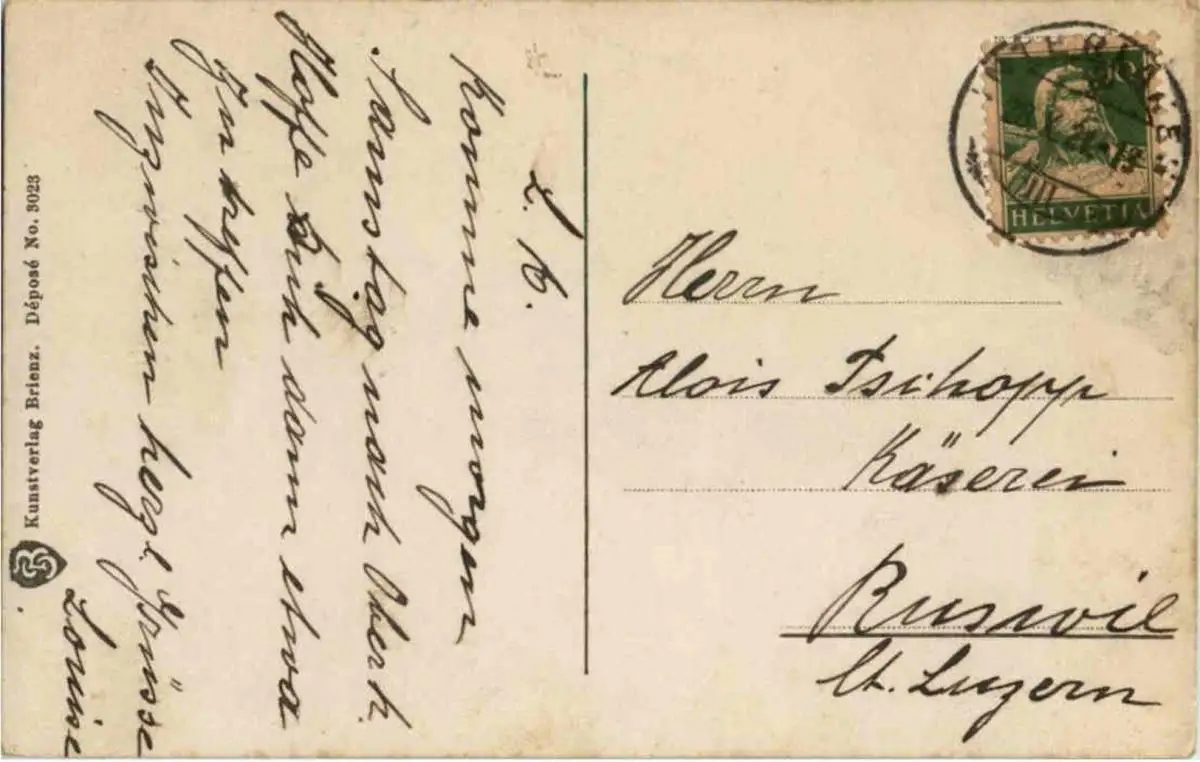 L. K.
Komme morgen
Samstag nach Oberk.
Hoffe Dich dann etwa
zu treffen
Inzwischen hezgl. Grüsse
Louise
Kunstverlag Brienz. Déposé No. 3023
INTERLAKEN
10
HELVETIA
Herrn
Alois Tschopp
Käserei
Ruswil
Ct. Luzern